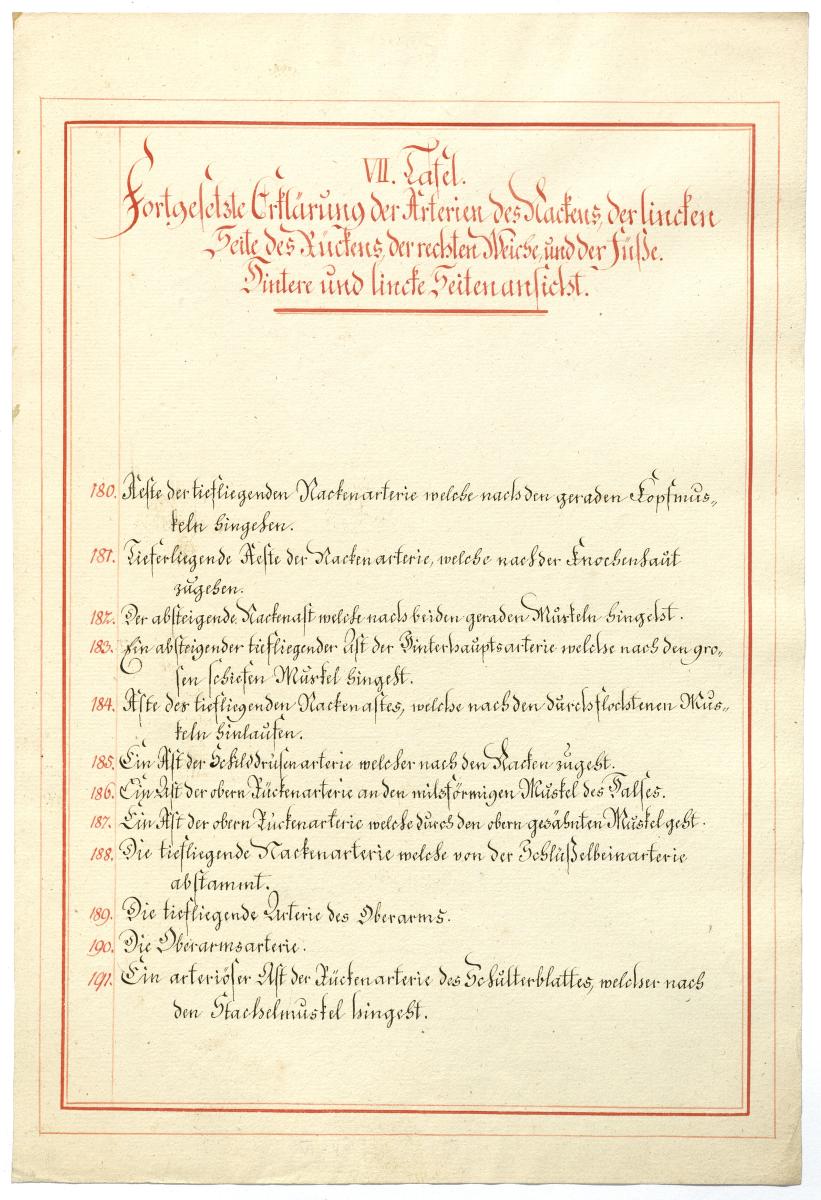 VII. Tafel.
Fortgesetzte Erklärung der Arterien des Nackens, der lincken
Seite des Rückens, der rechten Weiche, und der Füße.
Hintere und lincke Seitenansicht.
180. Aeste der tiefliegenden Nackenarterie welche nach den geraden Kopfmus-
keln hingehen.
181. Tieferliegende Aeste der Nackenarterie, welche nach der Knochenhaut
zugehen.
182. Der absteigende Nackenast welche nach beiden geraden Muskeln hingeht.
183. Ein absteigender tiefliegender Ast der Hinterhauptsarterie welche nach den gro-
sen schiefen Muskel hingeht.
184. Aste des tiefliegenden Nackenastes, welche nach den durchflochtenen Mus-
keln hinlaufen.
185. Ein Ast der Schilddrüsenarterie welcher nach den Nacken zugeht.
186. Ein Ast der obern Rückenarterie an den milzförmigen Muskel des Halses.
187. Ein Ast der obern Rückenarterie welche durch den obern gezähnten Muskel geht.
188. Die tiefliegende Nackenarterie welche von der Schlüßelbeinarterie
abstammt.
189. Die tiefliegende Arterie des Oberarms.
190. Die Oberarmsarterie.
191. Ein arteriöser Ast der Rückenarterie des Schulterblattes, welcher nach
den Stachelmuskel hingeht.